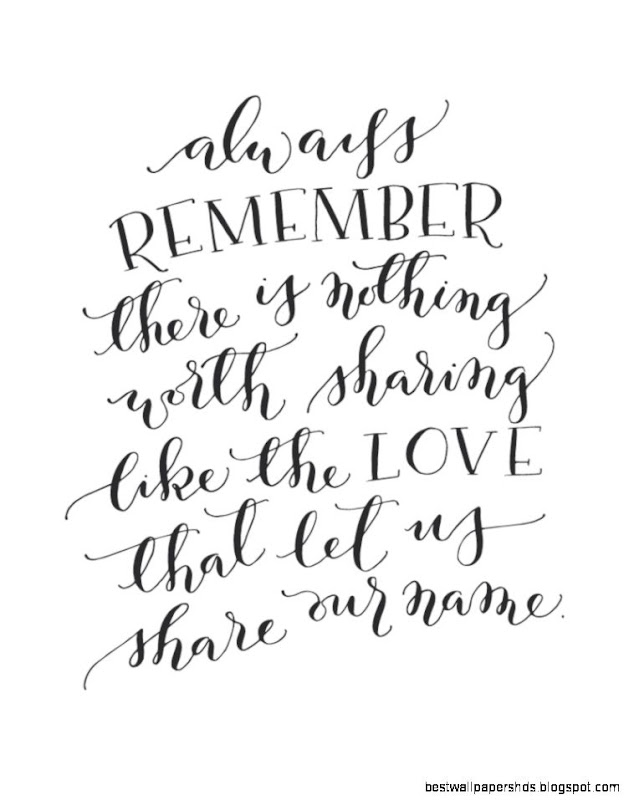 always
REMEMBER
there is nothing
worth sharing
like the LOVE
that let us
share our name.
bestwallpapershds.blogspot.com